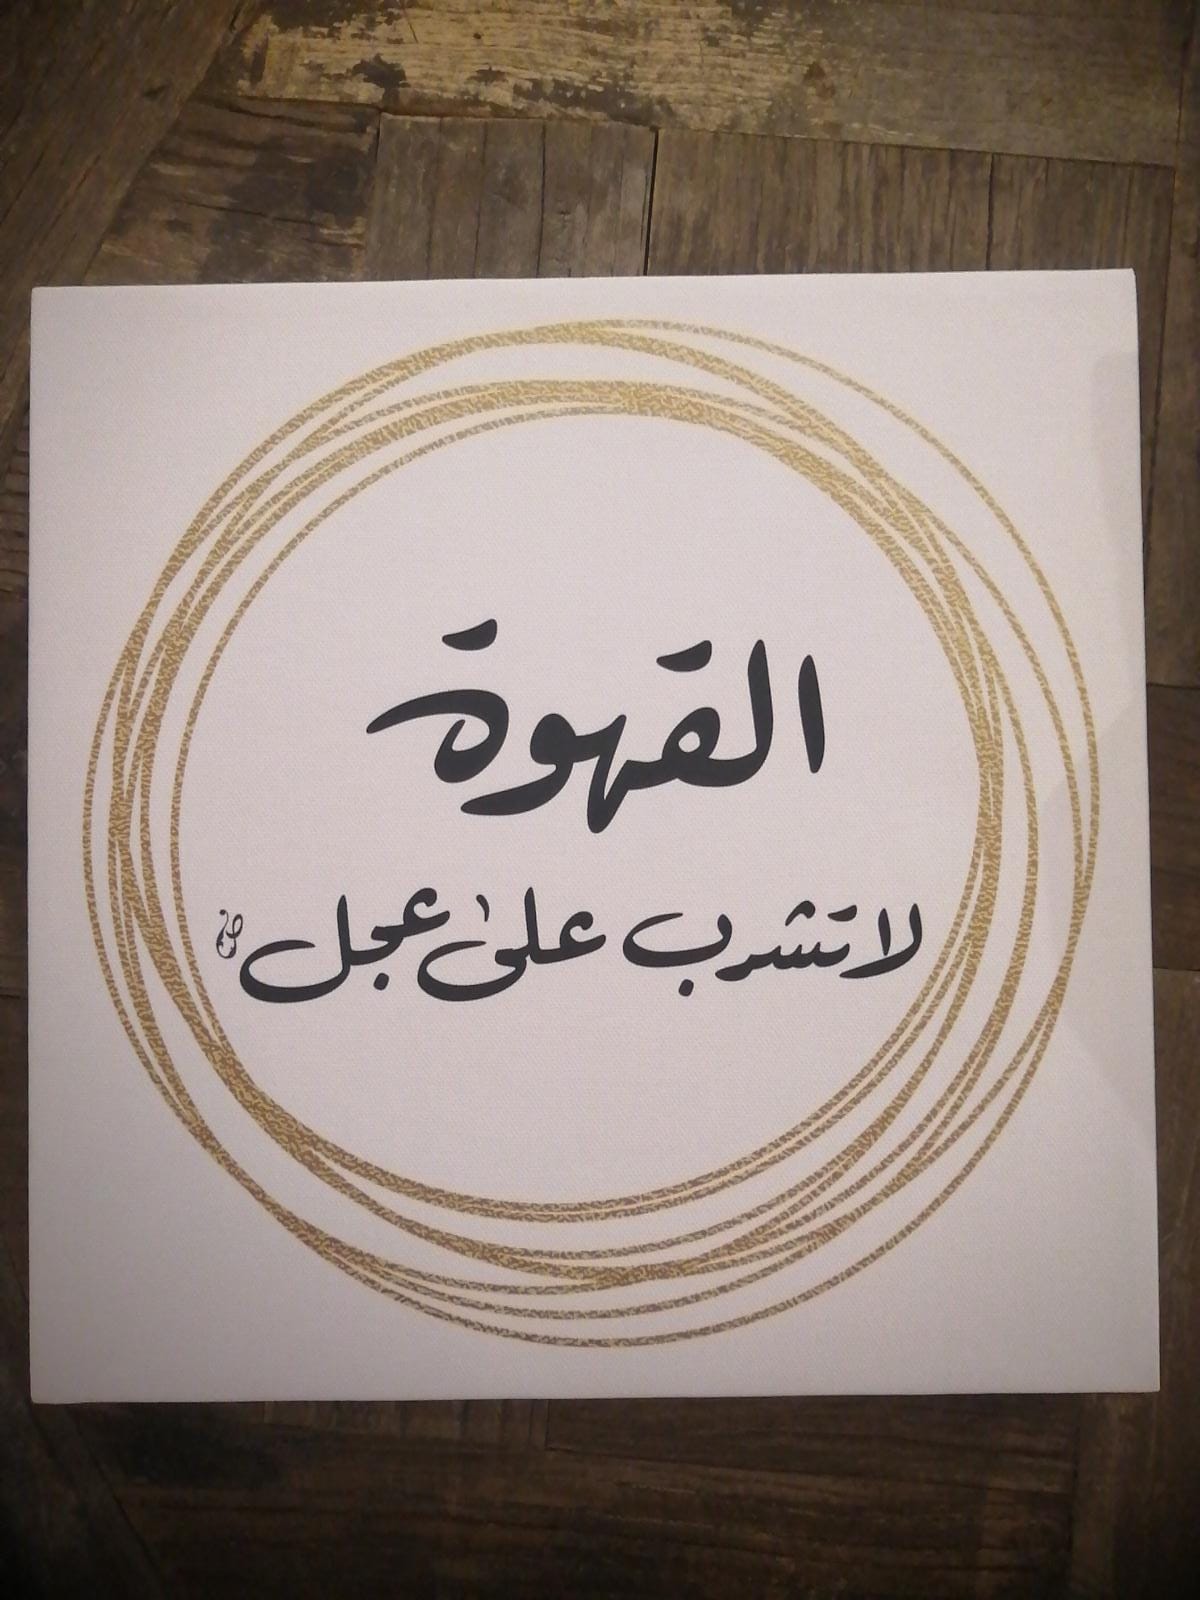 القهوة
لا تشرب على عجل